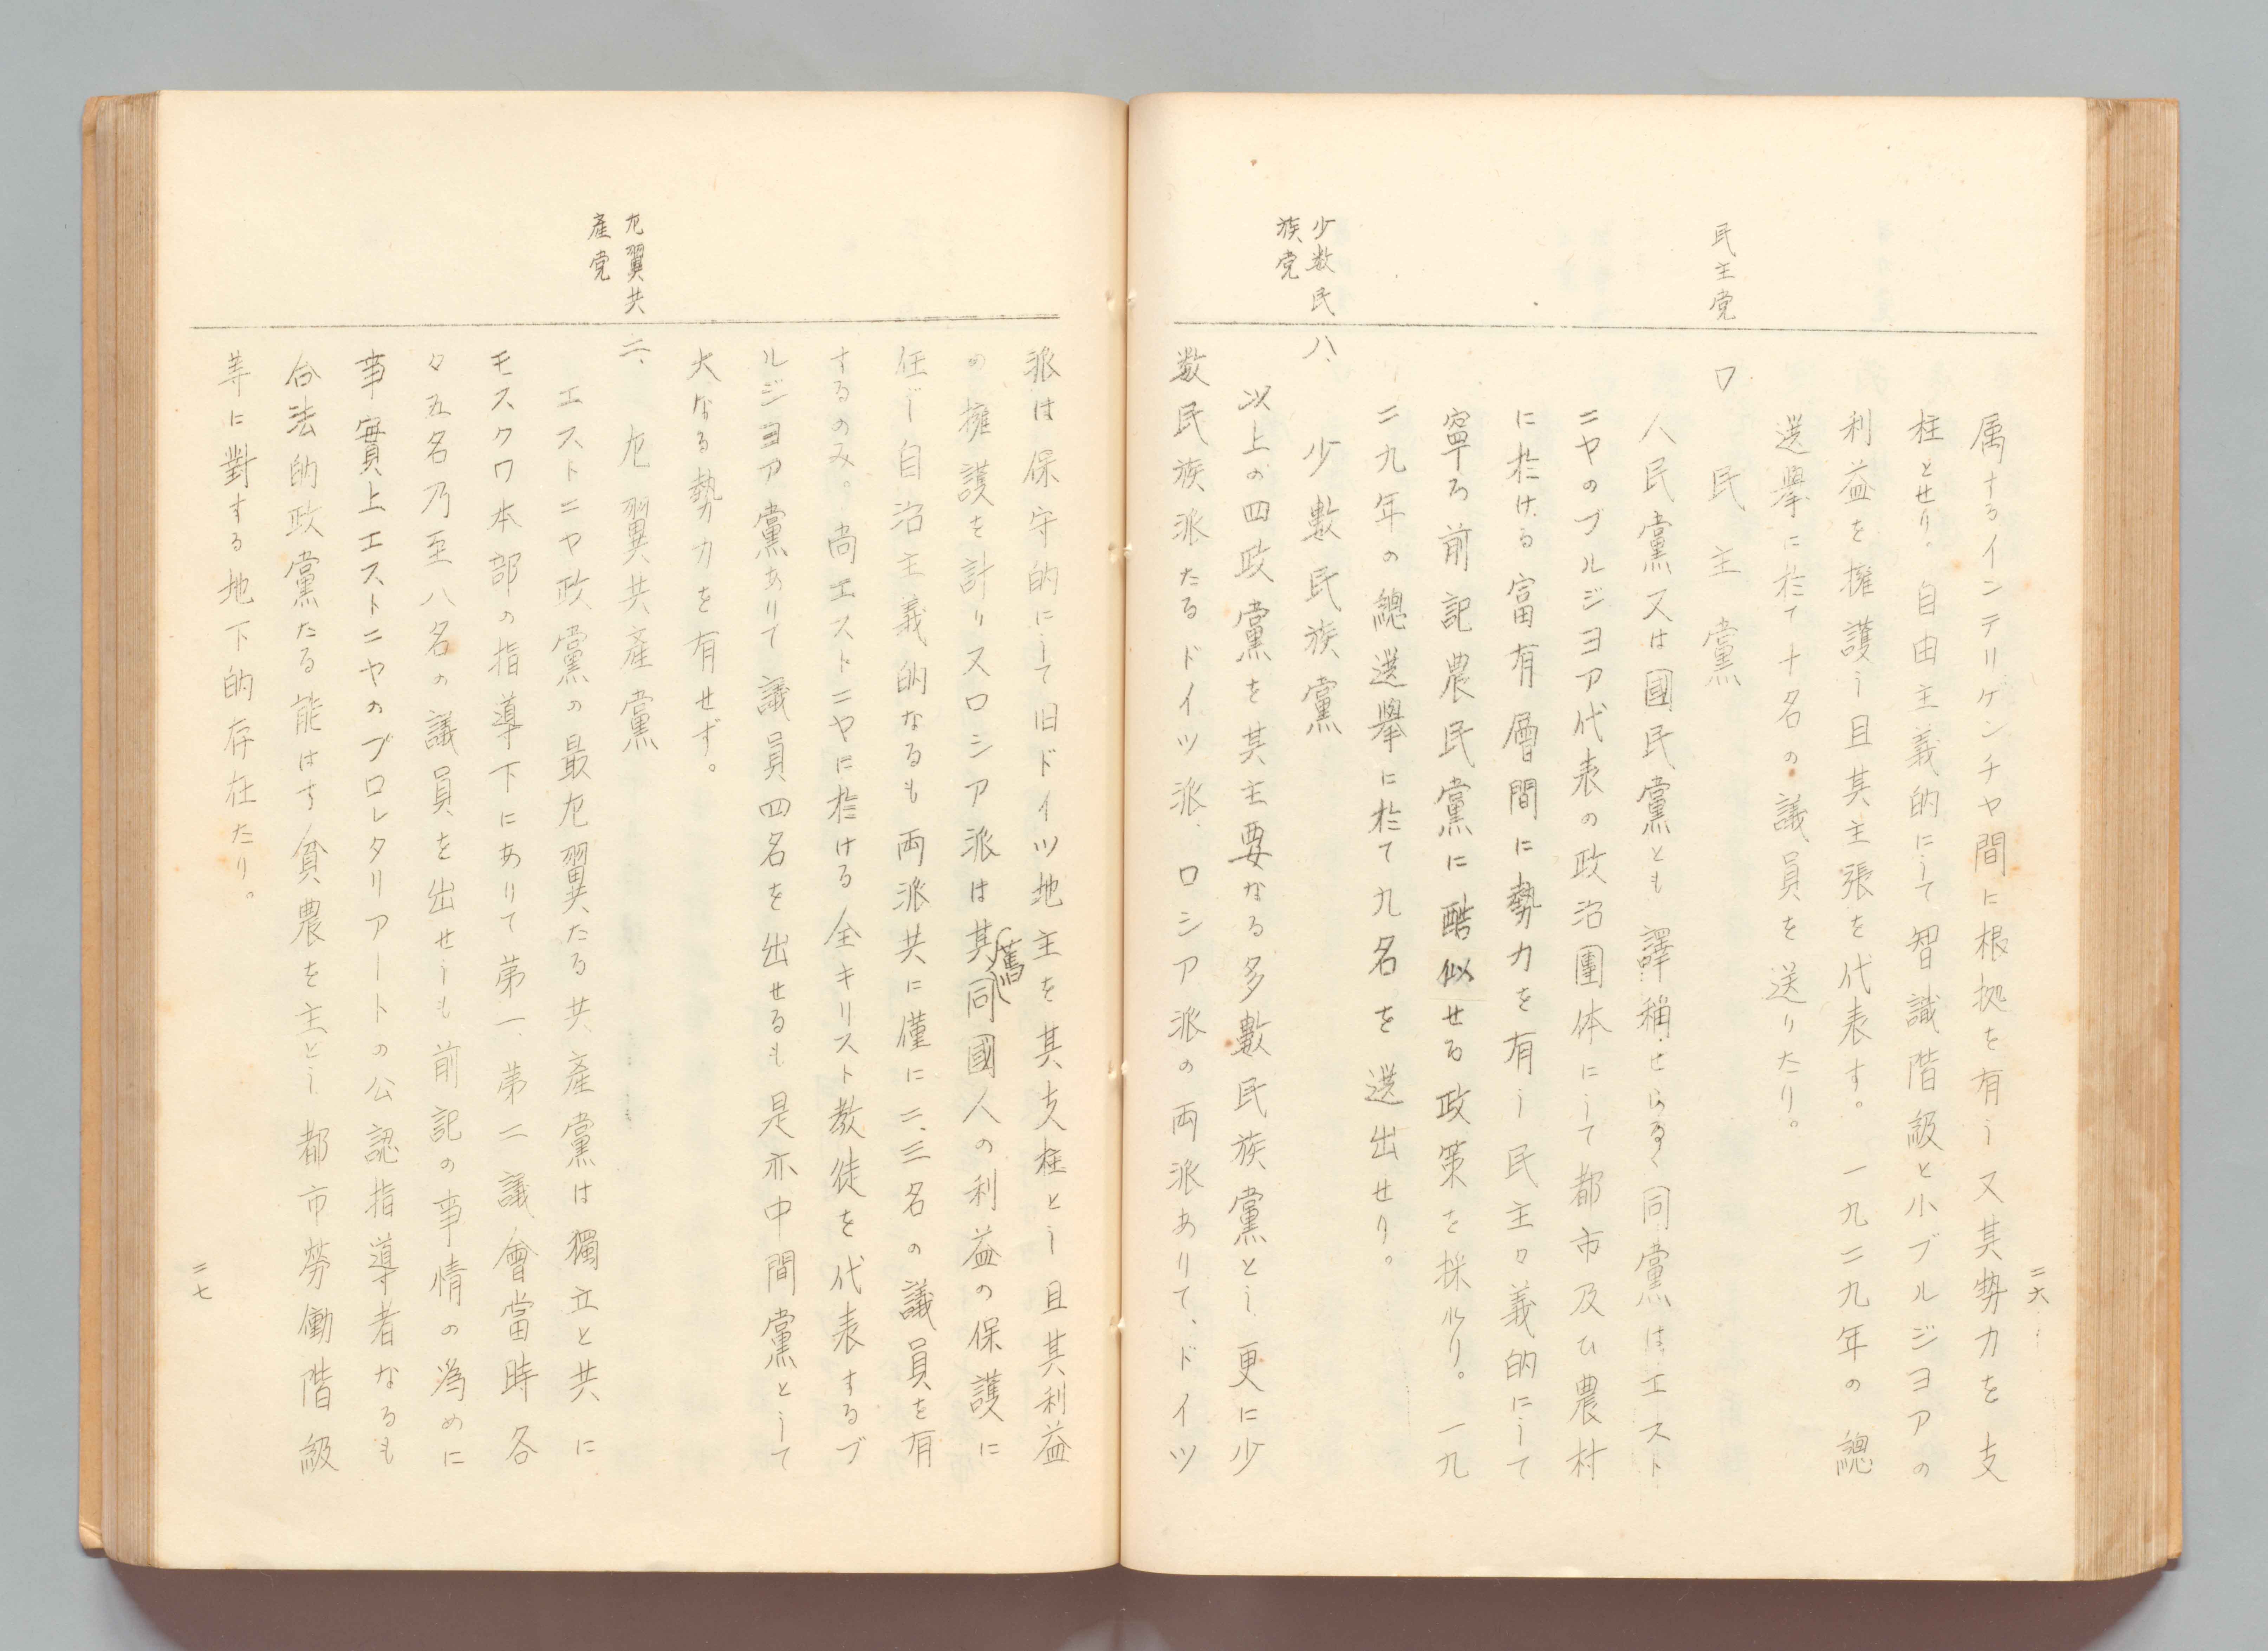 二六
属するインテリゲンチャ間に根拠を有し又其勢力を支
柱とせり。自由主義的にして智識階級と小ブルジヨアの
利益を擁護し且其主張を代表す。一九二九年の總
選擧に於て十名の議員を送りたり。
民主党
ロ 民主黨
人民黨又は國民黨とも譯稱せらるゝ同黨はエスト
ニヤのブルジヨア代表の政治團体にして都市及ひ農村
に於ける富有層間に勢力を有し民主々義的にして
寧ろ前記農民黨に酷似せる政策を採れり。一九
二九年の總選擧に於て九名を選出せり。
少数民
族党
ハ、少數民族黨
以上の四政黨を其主要なる多數民族黨とし更に少
数民族派たるドイツ派、ロシア派の両派ありて、ドイツ
派は保守的にして旧ドイツ地主を其支柱とし且其利益
の擁護を計りスロシア派は其(舊)同國人の利益の保護に
任じ自治主義的なるも両派共に僅に二、三名の議員を有
するのみ。尚エストニヤに於ける全キリスト教徒を代表するブ
ルジヨア黨ありて議員四名を出せるも是亦中間黨として
大なる勢力を有せず。
左翼共
産党
二、左翼共産黨
エストニヤ政黨の最左翼たる共産黨は獨立と共に
モスクワ本部の指導下にありて第一、第二議會當時各
々五名乃至八名の議員を出せしも前記の事情の為めに
事實上エストニヤのプロレタリアートの公認指導者なるも
合法的政黨たる能はす貧農を主とし都市勞働階級
等に對する地下的存在たり。
二七